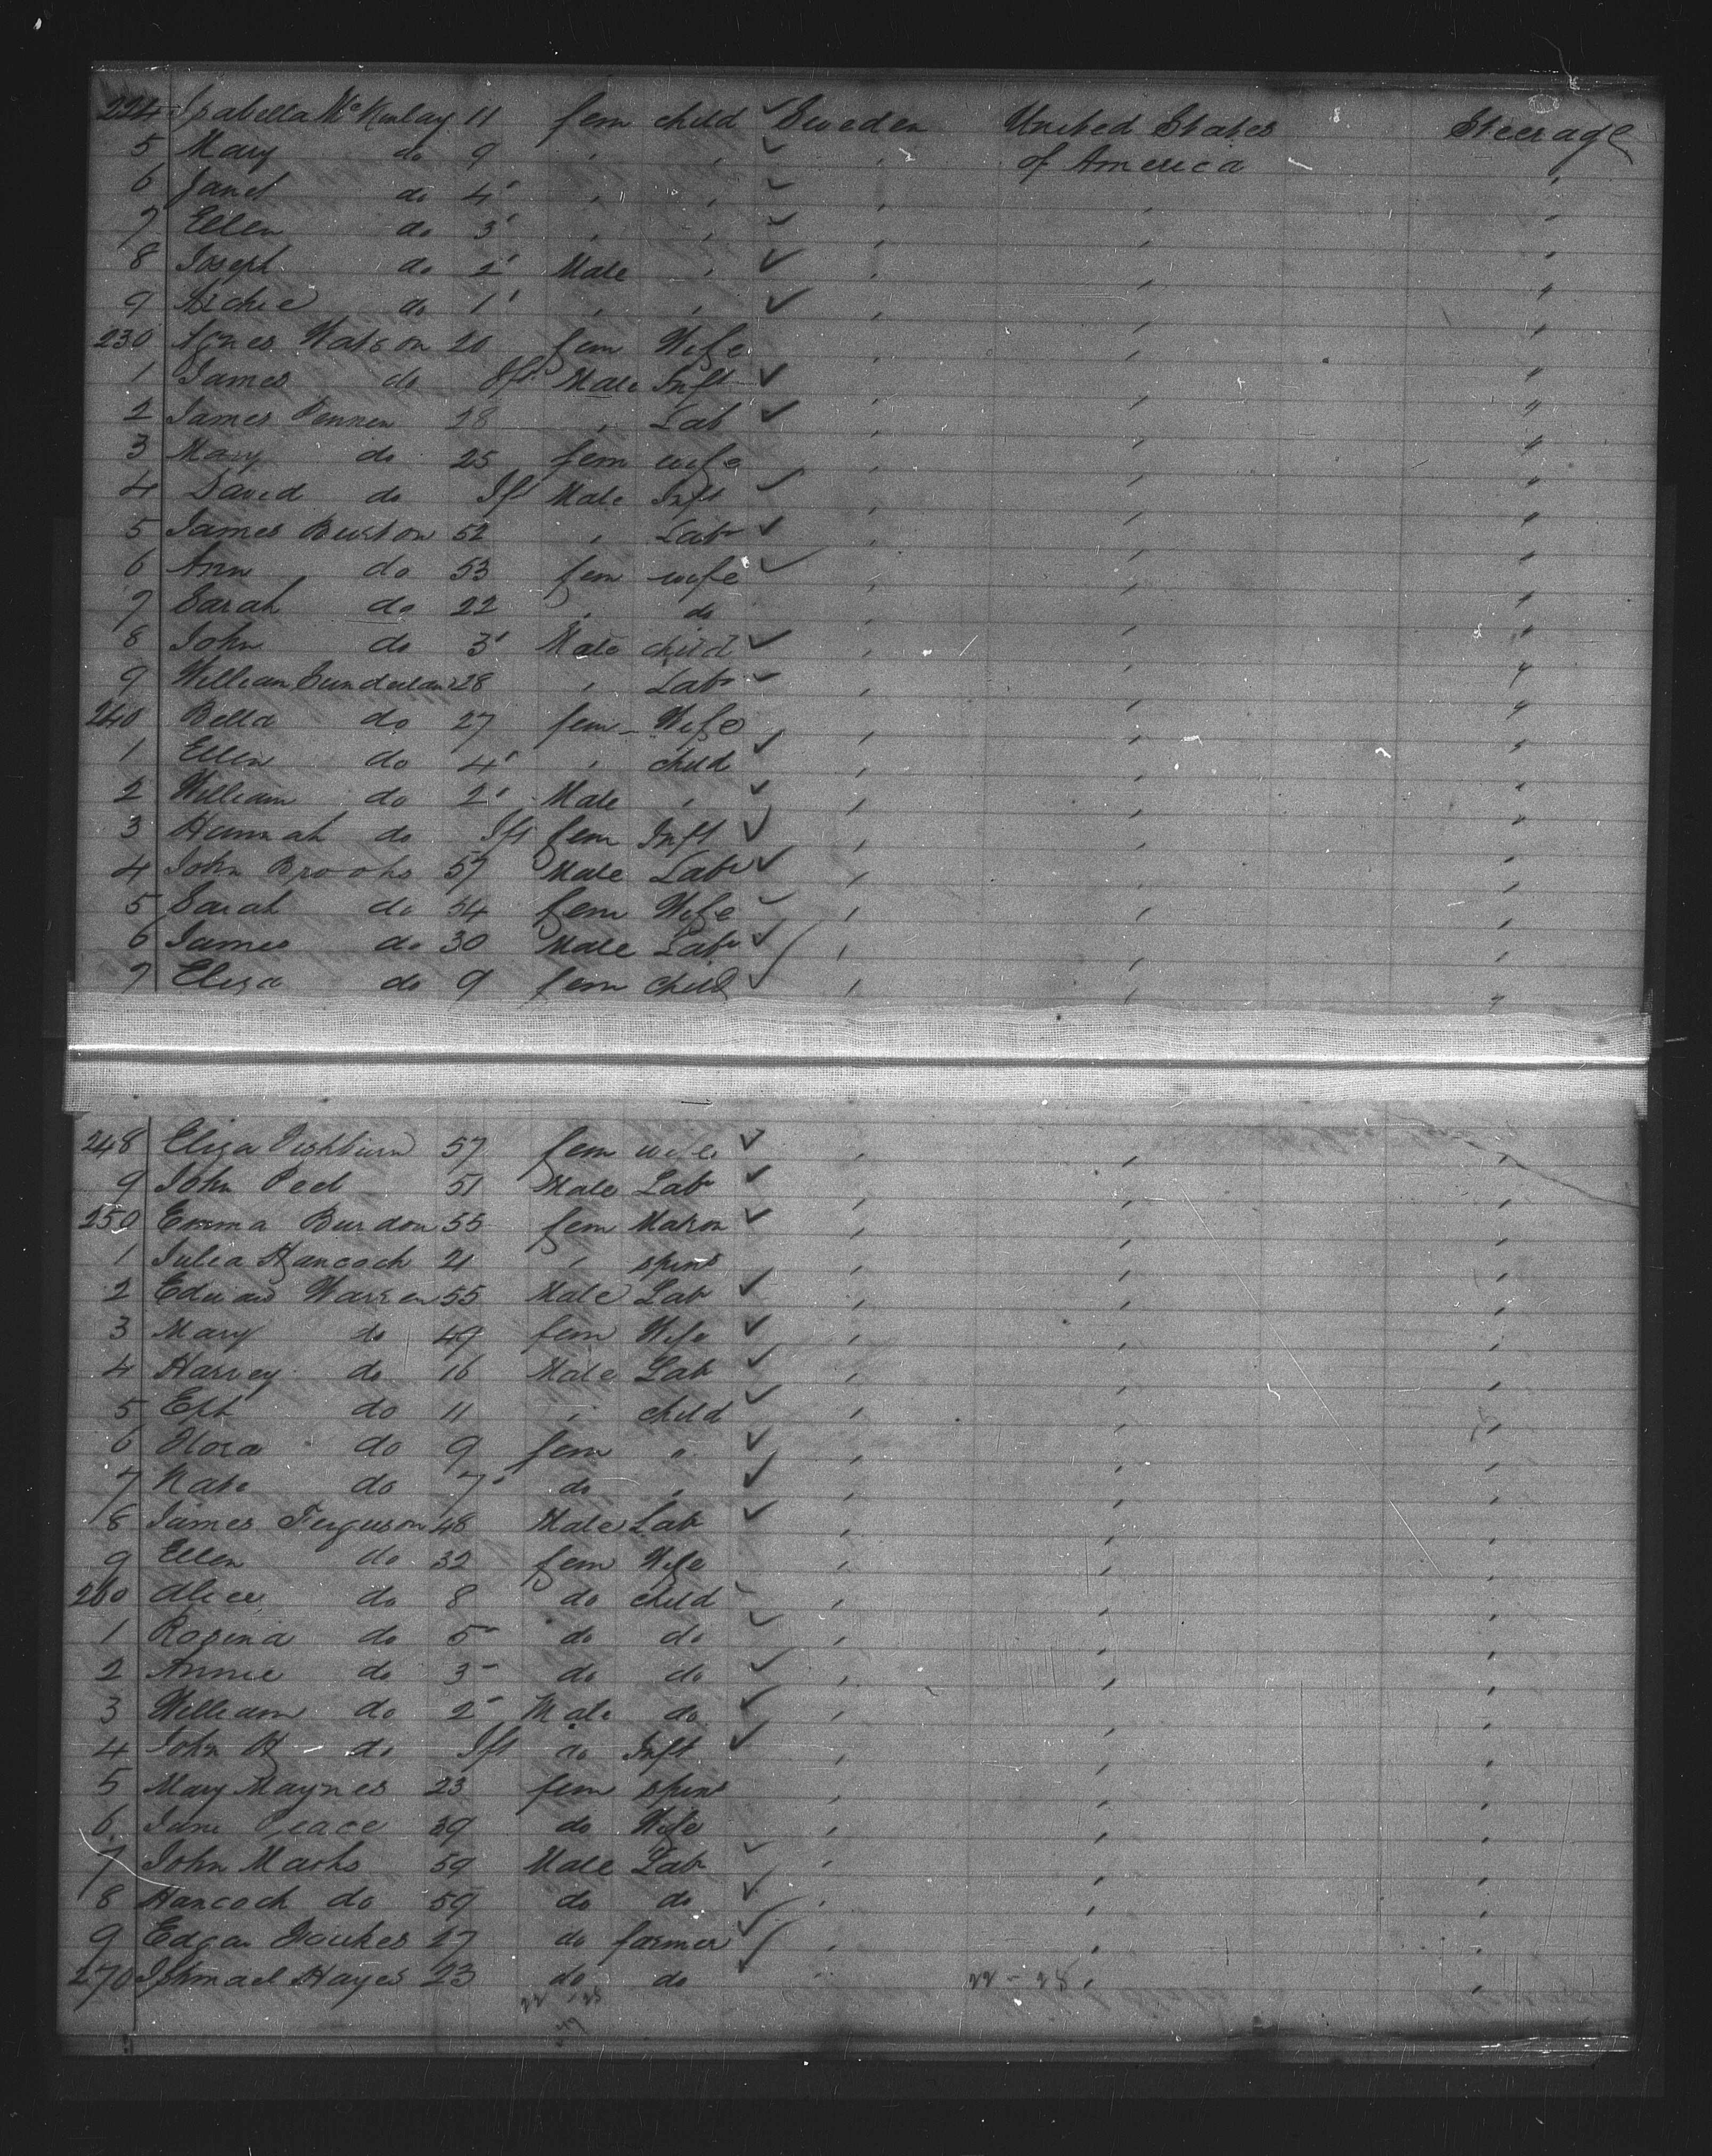 224 Isabella McKinlay 11 fem child ✓ Sweden United States Steerage
5 Mary do 9 " " ✓ " of America "
6 Janet do 4' " " ✓ " " "
7 Ellen do 3' " " ✓ " " "
8 Joseph do 2' Male " ✓ " " "
9 Archie do 1' " " ✓ " " "
230 Agnes Watson 20 fem Wife " " "
1 James do Ift Male Inft ✓ " " "
2 James Pennen 28 " Lab ✓ " " "
3 Mary do 25 fem wife " " "
4 David do Ift Male Inft ✓ " " "
5 James Burton 52 " Lab ✓ " " "
6 Ann do 53 fem wife ✓ " " "
7 Sarah do 22 " do " " "
8 John do 3' Male child ✓ " " "
9 William Sunderlan 28 " Lab ✓ " " "
240 Bella do 27 fem Wife " " "
1 Ellen do 4' " child ✓ " " "
2 William do 2' Male " ✓ " " "
3 Hannah do Ift fem Inft ✓ " " "
4 John Brooks 57 Male Lab ✓ " " "
5 Sarah do 54 fem Wife ✓ " " "
6 James do 30 Male Lab ✓ " " "
7 Eliza do 9 fem child ✓ " " "
248 Eliza 57 fem wife ✓ " " "
9 John Peel 51 Male Lab ✓ " " "
250 Emma Burdon 55 fem Matron ✓ " " "
1 Julia Hancock 21 " spins " " "
2 Edward Warren 55 Male Lab ✓ " " "
3 Mary do 49 fem Wife ✓ " " "
4 Harvey do 16 Male Lab ✓ " " "
5 Eph do 11 " child ✓ " " "
6 Flora do 9 fem " ✓ " " "
7 Kate do 7' do " ✓ " " "
8 James Ferguson 48 Male Lab ✓ " " "
9 Ellen do 32 fem Wife " " "
260 Alice do 8 do child ✓ " " "
1 Rosina do 5 do do ✓ " " "
2 Annie do 3 do do ✓ " " "
3 William do 2 Male do ✓ " " "
4 John H do Ift do Inft ✓ " " "
5 Mary Maynes 23 fem spins " " "
6 Jane Peace 39 do Wife " " "
7 John Marks 59 Male Lab ✓ " " "
8 Hancock do 59 do do ✓ " " "
9 Edgar 27 do farmer ✓ " " "
270 Ishmael Hayes 23 do do ✓ " 22 - 28 " "
22 28